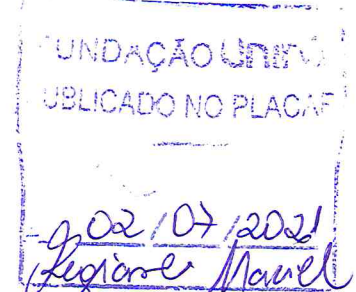 UNDAÇÃO Unir
UBLICADO NO PLACAR
02/07/2021
Regiane Maciel